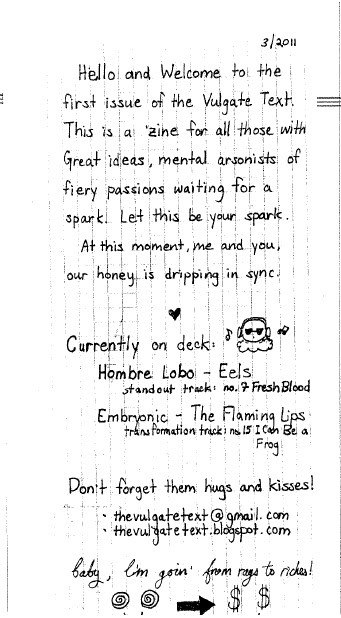 3/2011
Hello and Welcome to the
first issue of the Vulgate Text.
This is a 'zine for all those with
Great ideas, mental arsonists of
fiery passions waiting for a
spark. Let this be your spark.
At this moment, me and you,
our honey is dripping in sync.
Currently on deck:
Hombre Lobo - Eels
standout track: no. 7 Fresh Blood
Embryonic - The Flaming Lips
transformation track: no. 15 I Can Be a
Frog
Don't forget them hugs and kisses!
· thevulgatetext@gmail.com
· thevulgatetext.blogspot.com
baby, I'm goin' from rags to riches!
$ $